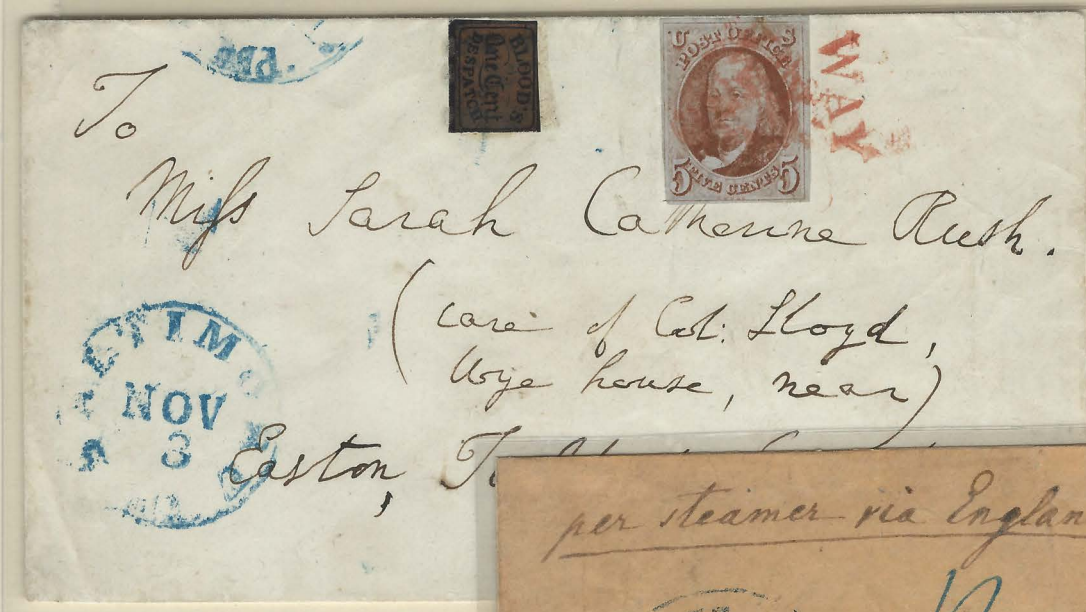 PD
BLOOD'S
One Cent
DESPATCH
U S
POST OFFICE
5 FIVE CENTS 5
WAY
To
Miss Sarah Catherine Rush.
(care of Col: Lloyd,
Wye house, near)
Easton,
BALTIMORE
NOV
3
per steamer via Englan